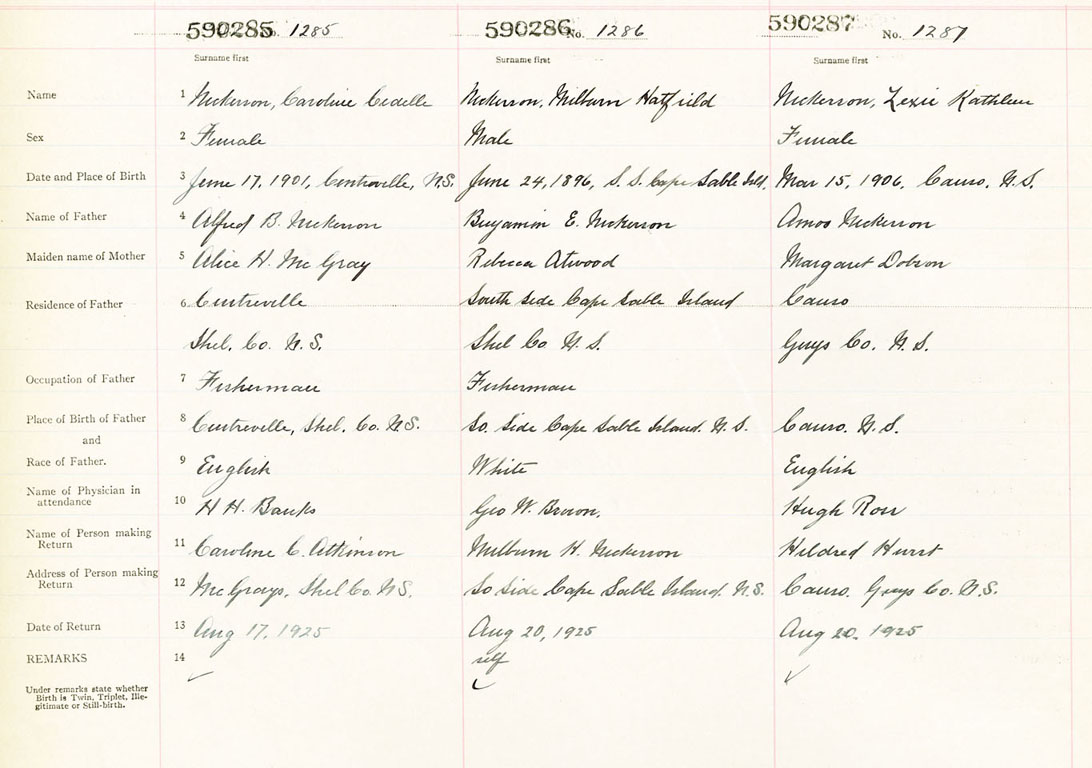 590285 No. 1285 590286 No. 1286 590287 No. 1287
Surname first Surname first Surname first
Name 1 Nickerson, Caroline Cedelle Nickerson, Milburn Hatfield Nickerson, Lexie Kathleen
Sex 2 Female Male Female
Date and Place of Birth 3 June 17, 1901, Centreville, N.S. June 24, 1896, S. S. Cape Sable Isld. Mar 15, 1906, Canso, N.S.
Name of Father 4 Alfred B. Nickerson Benjamin E. Nickerson Amos Nickerson
Maiden name of Mother 5 Alice H. McGray Rebecca Atwood Margaret Dobson
Residence of Father 6 Centreville South Side Cape Sable Island Canso
Shel. Co. N.S. Shel Co N.S. Guys Co. N.S.
Occupation of Father 7 Fisherman Fisherman
Place of Birth of Father 8 Centreville, Shel. Co. N.S. So. Side Cape Sable Island. N.S. Canso. N.S.
and
Race of Father. 9 English White English
Name of Physician in
attendance 10 H H. Banks Geo W. Brown. Hugh Ross
Name of Person making
Return 11 Caroline C. Atkinson Milburn H. Nickerson Hildred Hurst
Address of Person making
Return 12 McGrays, Shel Co. N.S. So Side Cape Sable Island. N.S. Canso. Guys Co. N.S.
Date of Return 13 Aug 17, 1925 Aug 20, 1925 Aug 20, 1925
REMARKS 14 self
Under remarks state whether
Birth is Twin, Triplet, Ille-
gitimate or Still-birth.